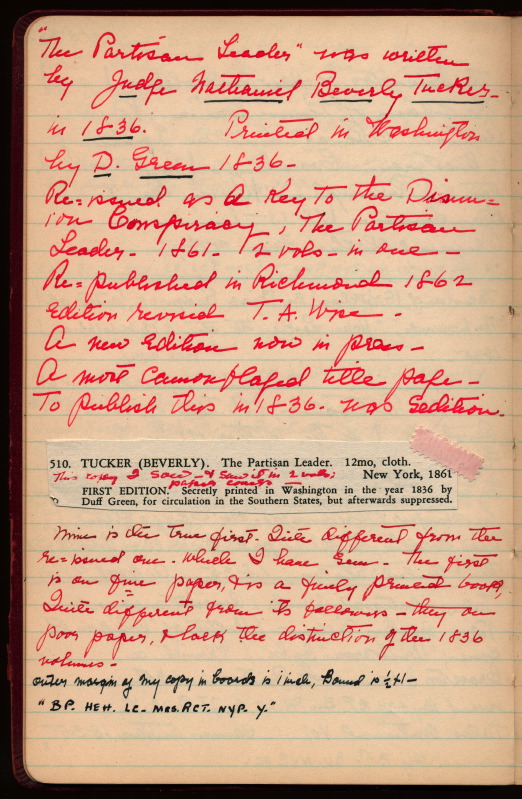 "The Partisan Leader" was written
by Judge Nathaniel Beverly Tucker-
in 1836. Printed in Washington
by D. Green 1836-
Re=issued as A Key to the Disun=
ion Conspiracy, The Partisan
Leader- 1861- 2 vols- in one-
Re=published in Richmond 1862
Edition revised T. A. Wise-
A new Edition now in press-
A most camouflaged title page-
To publish this in 1836- was sedition.
510. TUCKER (BEVERLY). The Partisan Leader. 12mo, cloth.
This copy I saw- & saw it in 2 vols; New York, 1861
paper covers-
FIRST EDITION. Secretly printed in Washington in the year 1836 by
Duff Green, for circulation in the Southern States, but afterwards suppressed.
Mine is the true first. Quite different from the
re=issued one- which I have seen- The first
is on fine paper, & is a finely printed book,
Quite different from its followers- they on
poor paper, & lack the distinction of the 1836
volumes-
outer margin of my copy in boards is 1 inch, Bound is ½
"BP. HEH. LC- MBS. RCT. NYP. Y."